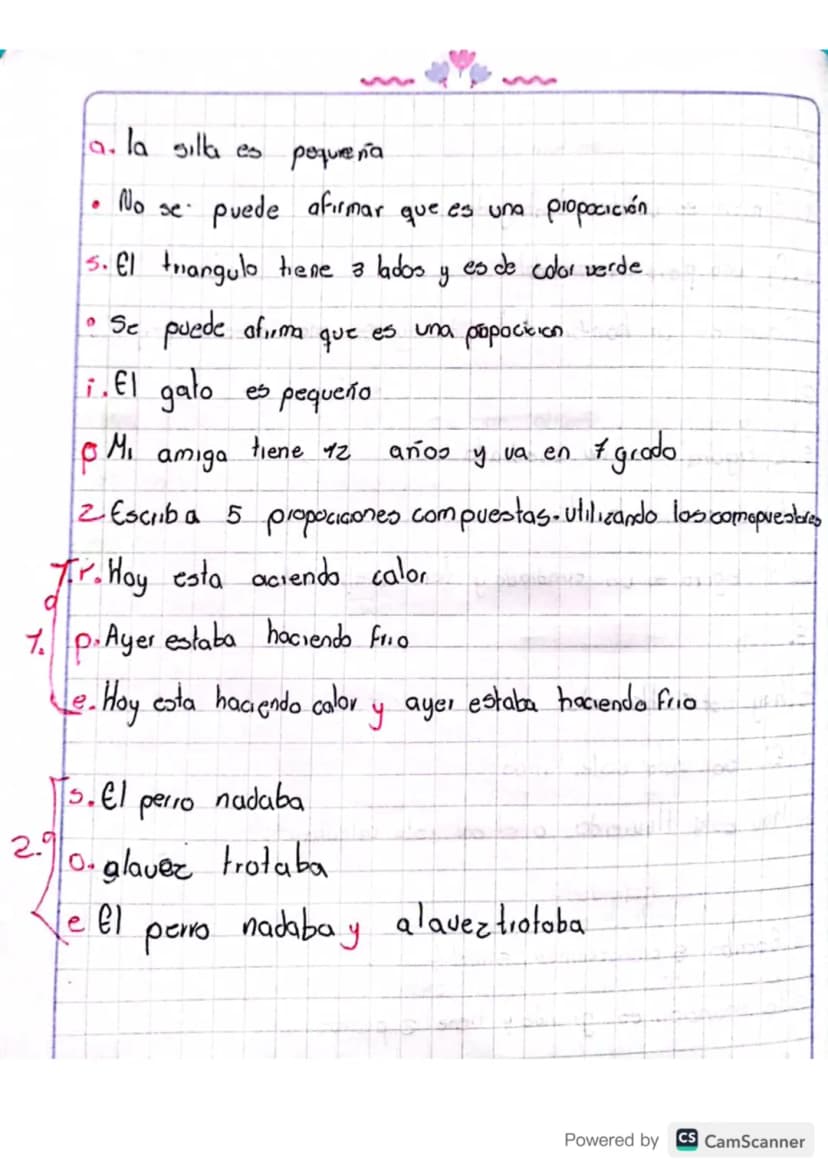 a. la silla es pequeña
• No se puede afirmar que es una propocición
s. El triangulo tiene 3 lados y es de color verde
• Se puede afirma que es una
i. El gato es pequeño
p Mi amiga tiene 12 años y va en 7 grado
2 Escriba 5 propociciones compuestas. utilizando los
r. Hoy esta aciendo calor
1. p. Ayer estaba haciendo frio
e. Hoy esta haciendo calor y ayer estaba haciendo frio
s. El perro nadaba
2. o. alavez trotaba
e El perro nadaba y alavez trotaba
Powered by CS CamScanner